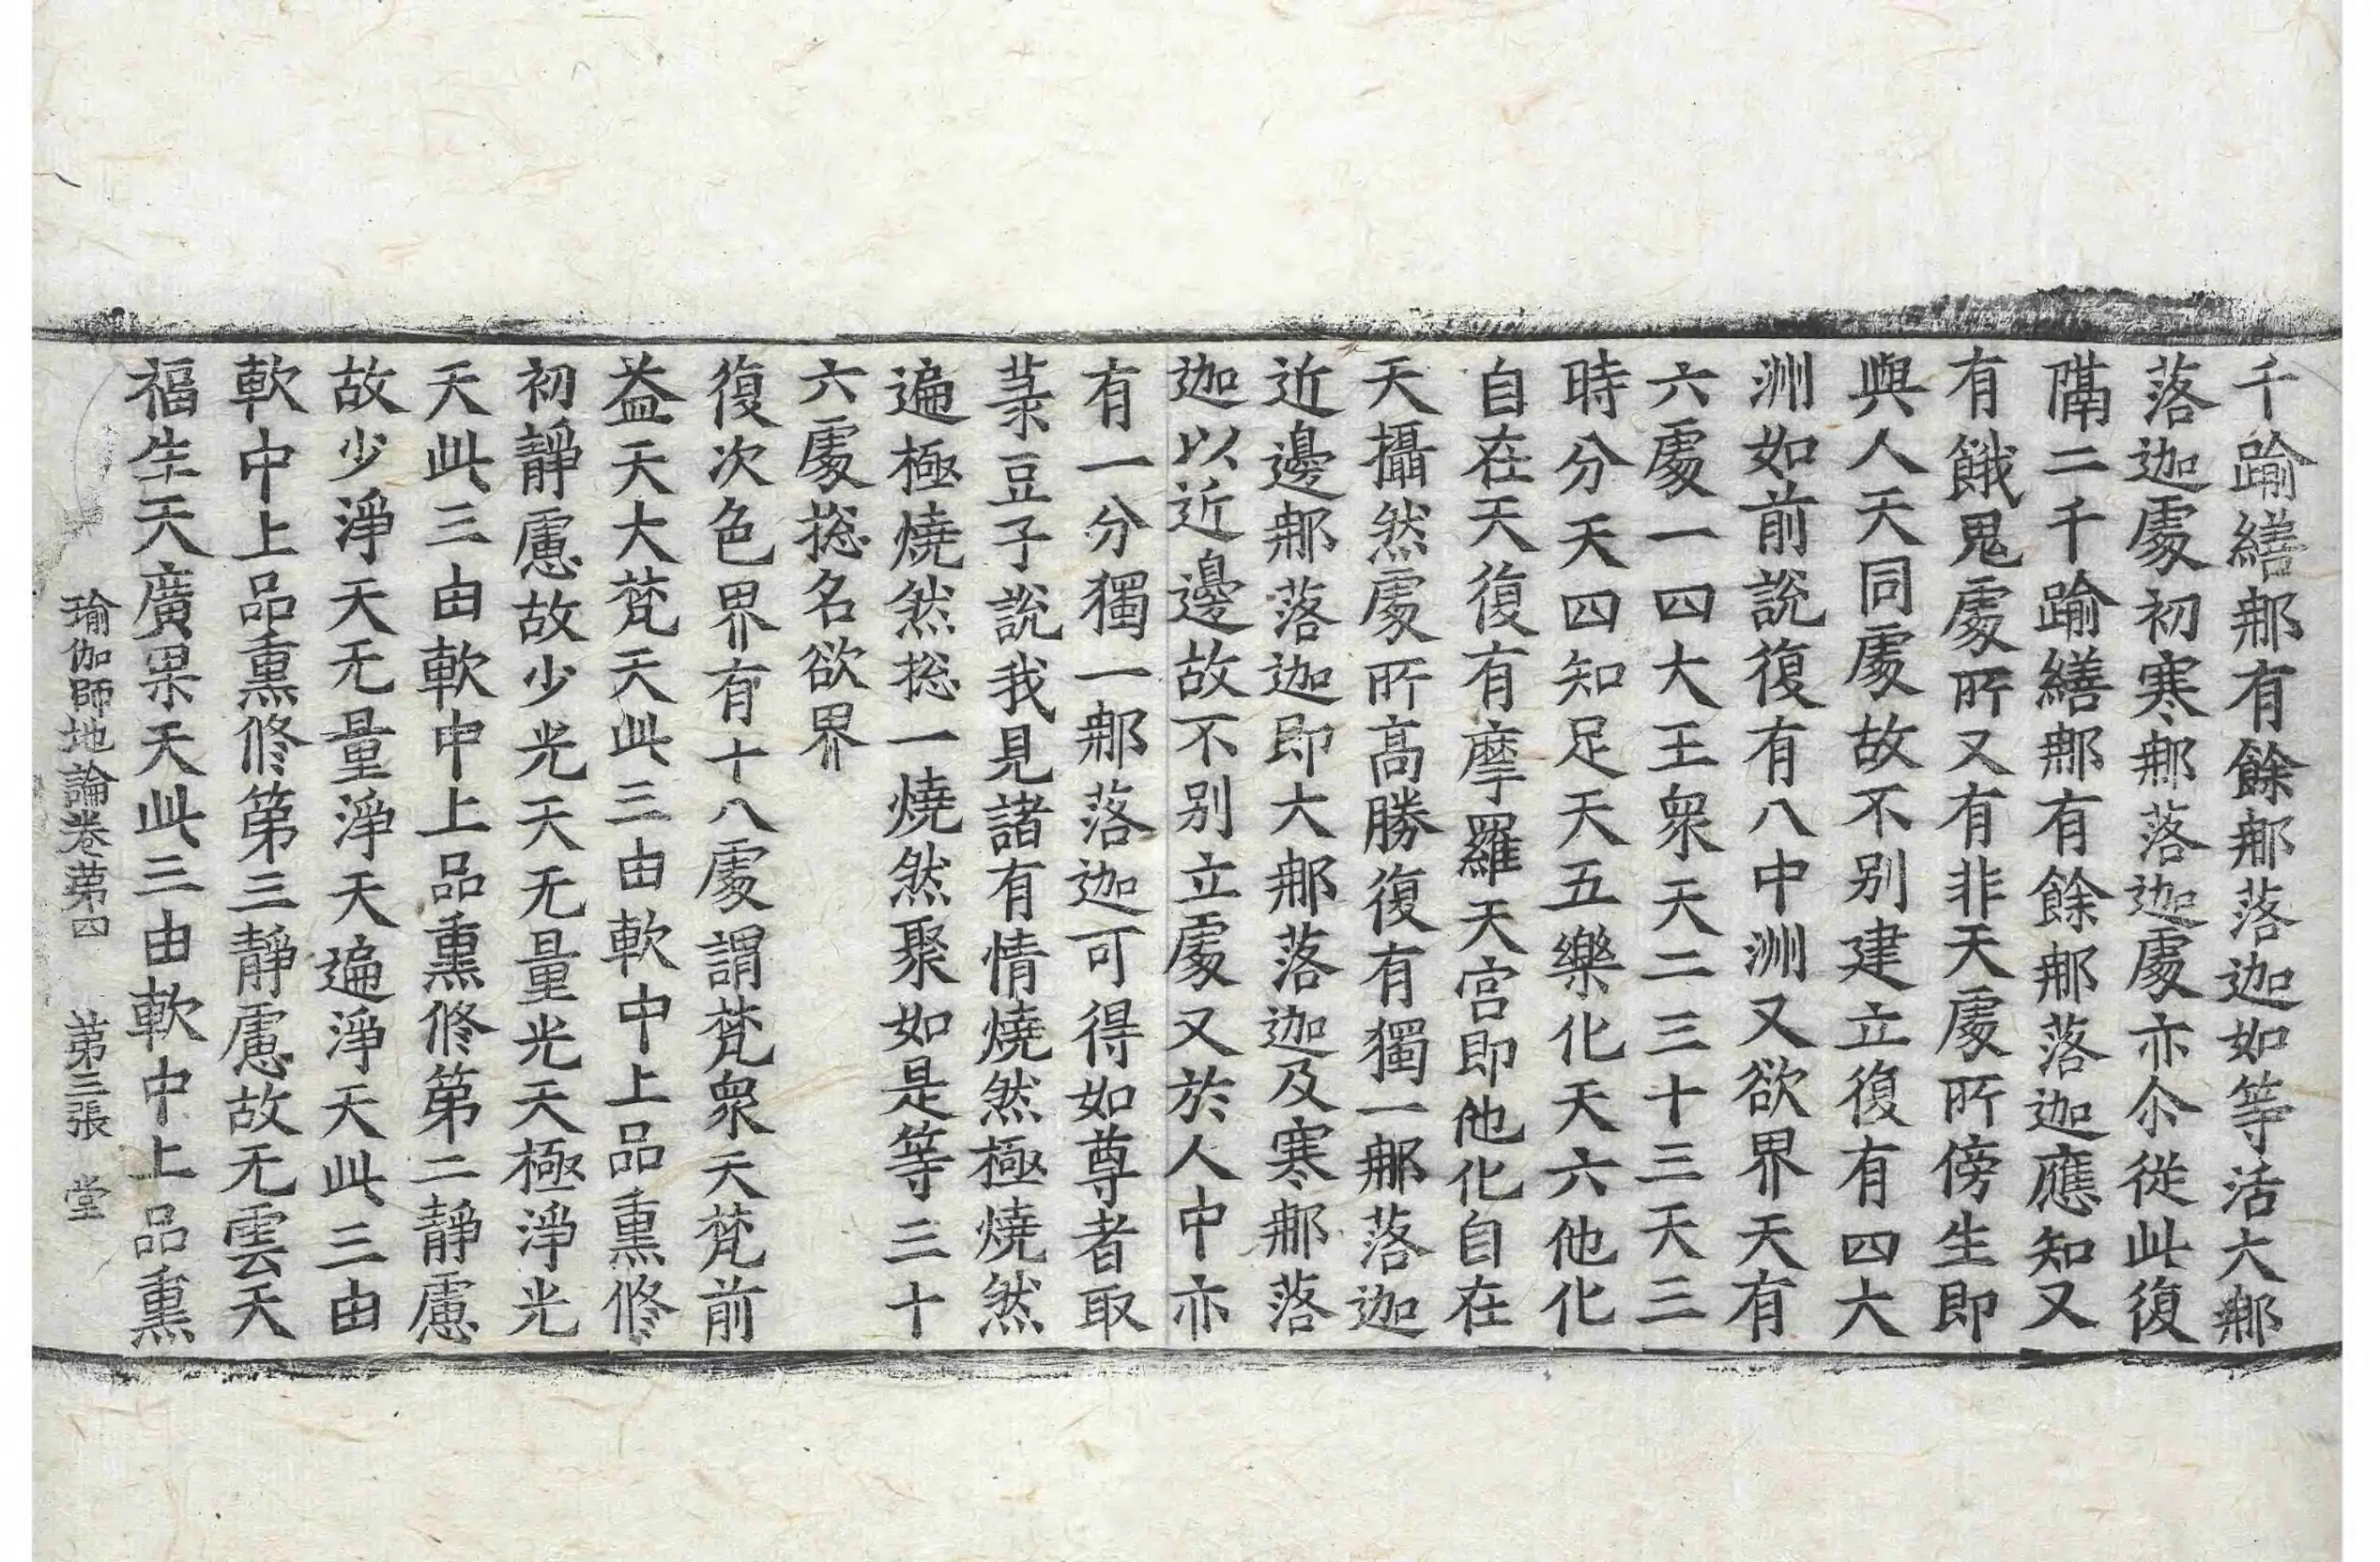 千踰繕那有餘那落迦如等活大那
落迦處初寒那落迦處亦尒從此復
隔二千踰繕那有餘那落迦應知又
有餓鬼處所又有非天處所傍生即
與人天同處故不別建立復有四大
洲如前說復有八中洲又欲界天有
六處一四大王衆天二三十三天三
時分天四知足天五樂化天六他化
自在天復有摩羅天宮即他化自在
天攝然處所高勝復有獨一那落迦
近邊那落迦即大那落迦及寒那落
迦以近邊故不別立處又於人中亦
有一分獨一那落迦可得如尊者取
菉豆子說我見諸有情燒然極燒然
遍極燒然揔一燒然聚如是等三十
六處揔名欲界
復次色界有十八處謂梵衆天梵前
益天大梵天此三由軟中上品熏修
初靜慮故少光天无量光天極淨光
天此三由軟中上品熏修第二靜慮
故少淨天无量淨天遍淨天此三由
軟中上品熏修第三靜慮故无雲天
福生天廣果天此三由軟中上品熏
瑜伽師地論卷苐四 苐三張 堂